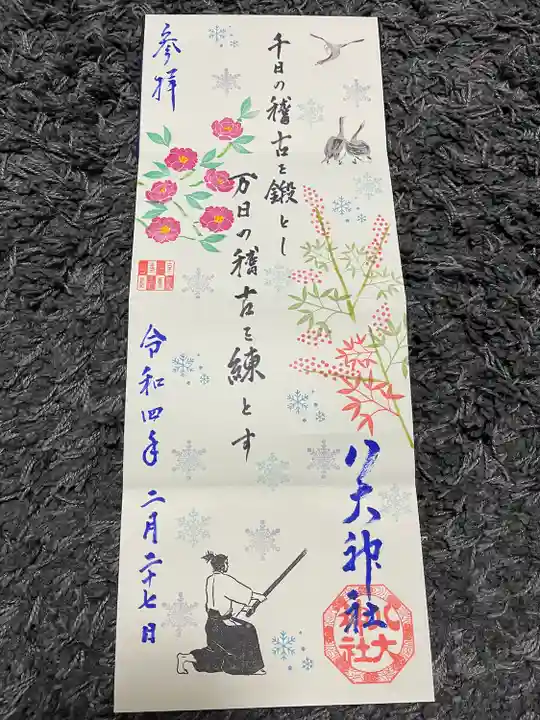 八大神社
千日の稽古を鍛とし
万日の稽古を練とす
参拝
令和四年 二月二十七日
八大神社